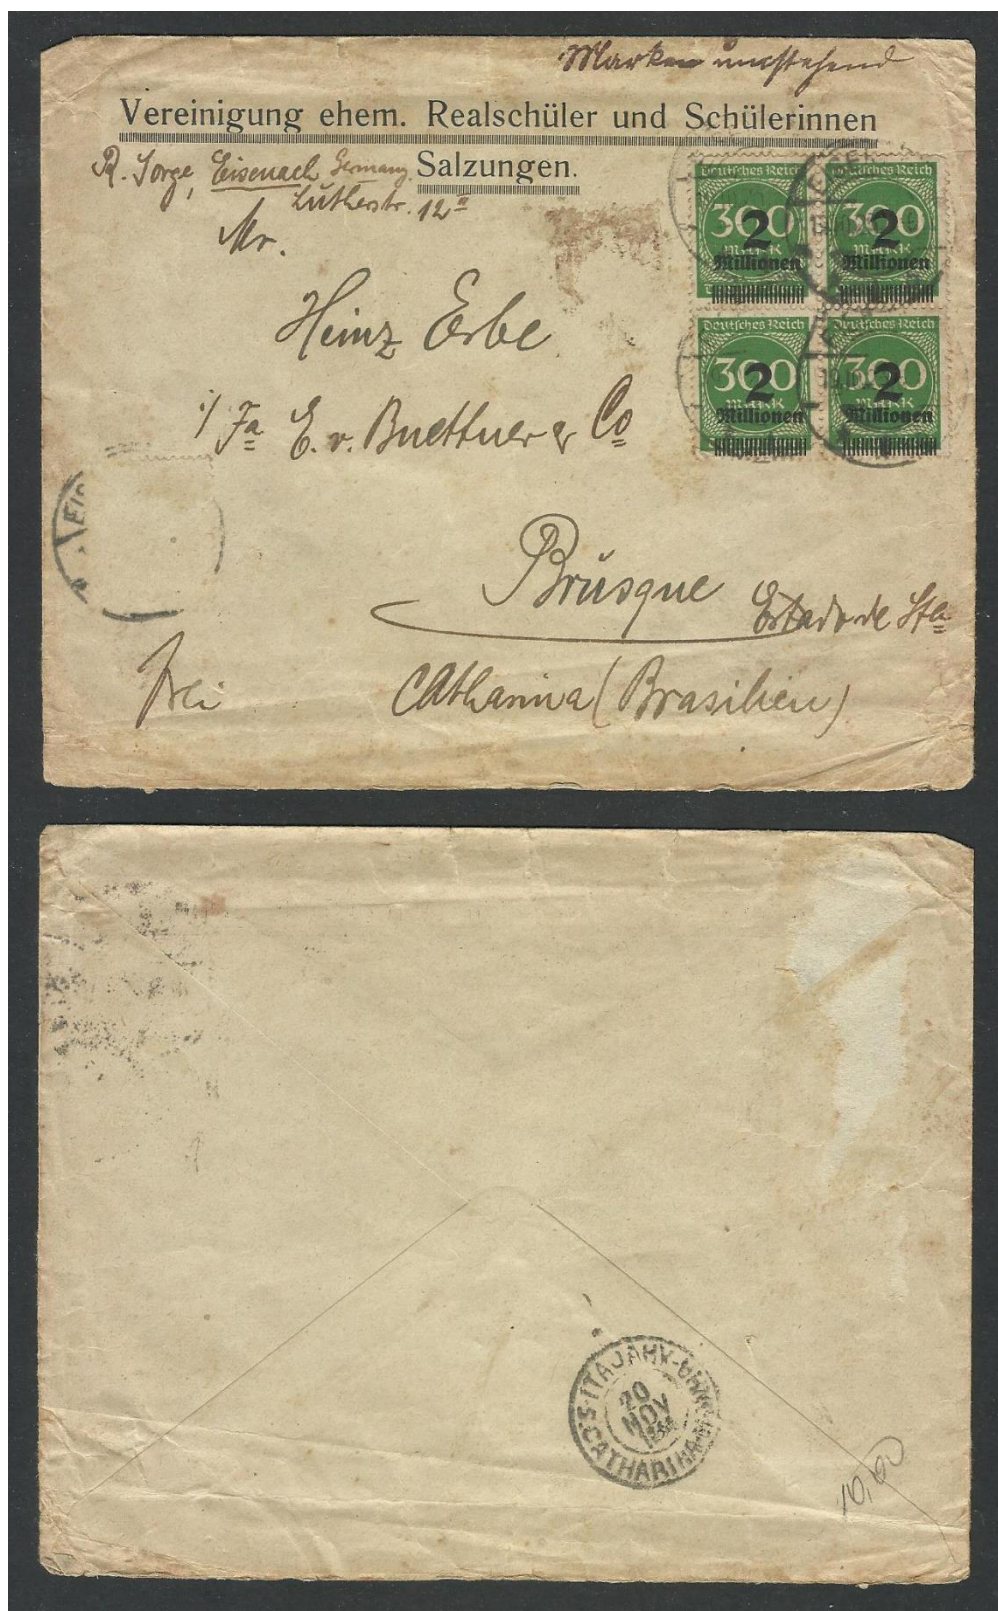 Marken umstehend
Vereinigung ehem. Realschüler und Schülerinnen
Salzungen.
R. Jorge, Eisenach Germany
Lutherstr. 12a
Mr.
Heinz Erbe
Fa E. v. Buettner & Co
Brusque Estado de Sta
Catharina (Brasilien)
frei
Deutsches Reich
300
2
Mark
Millionen
Deutsches Reich
300
2
Mark
Millionen
Deutsches Reich
300
2
Mark
Millionen
Deutsches Reich
300
2
Mark
Millionen
Eis
ITAJAHY
S. CATHARINA
20
NOV
10,00